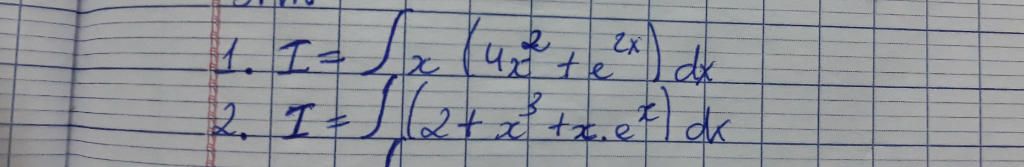 1. I = ∫ x (4x² + e^{2x}) dx
2. I = ∫ (2 + x³ + x.e^x) dx